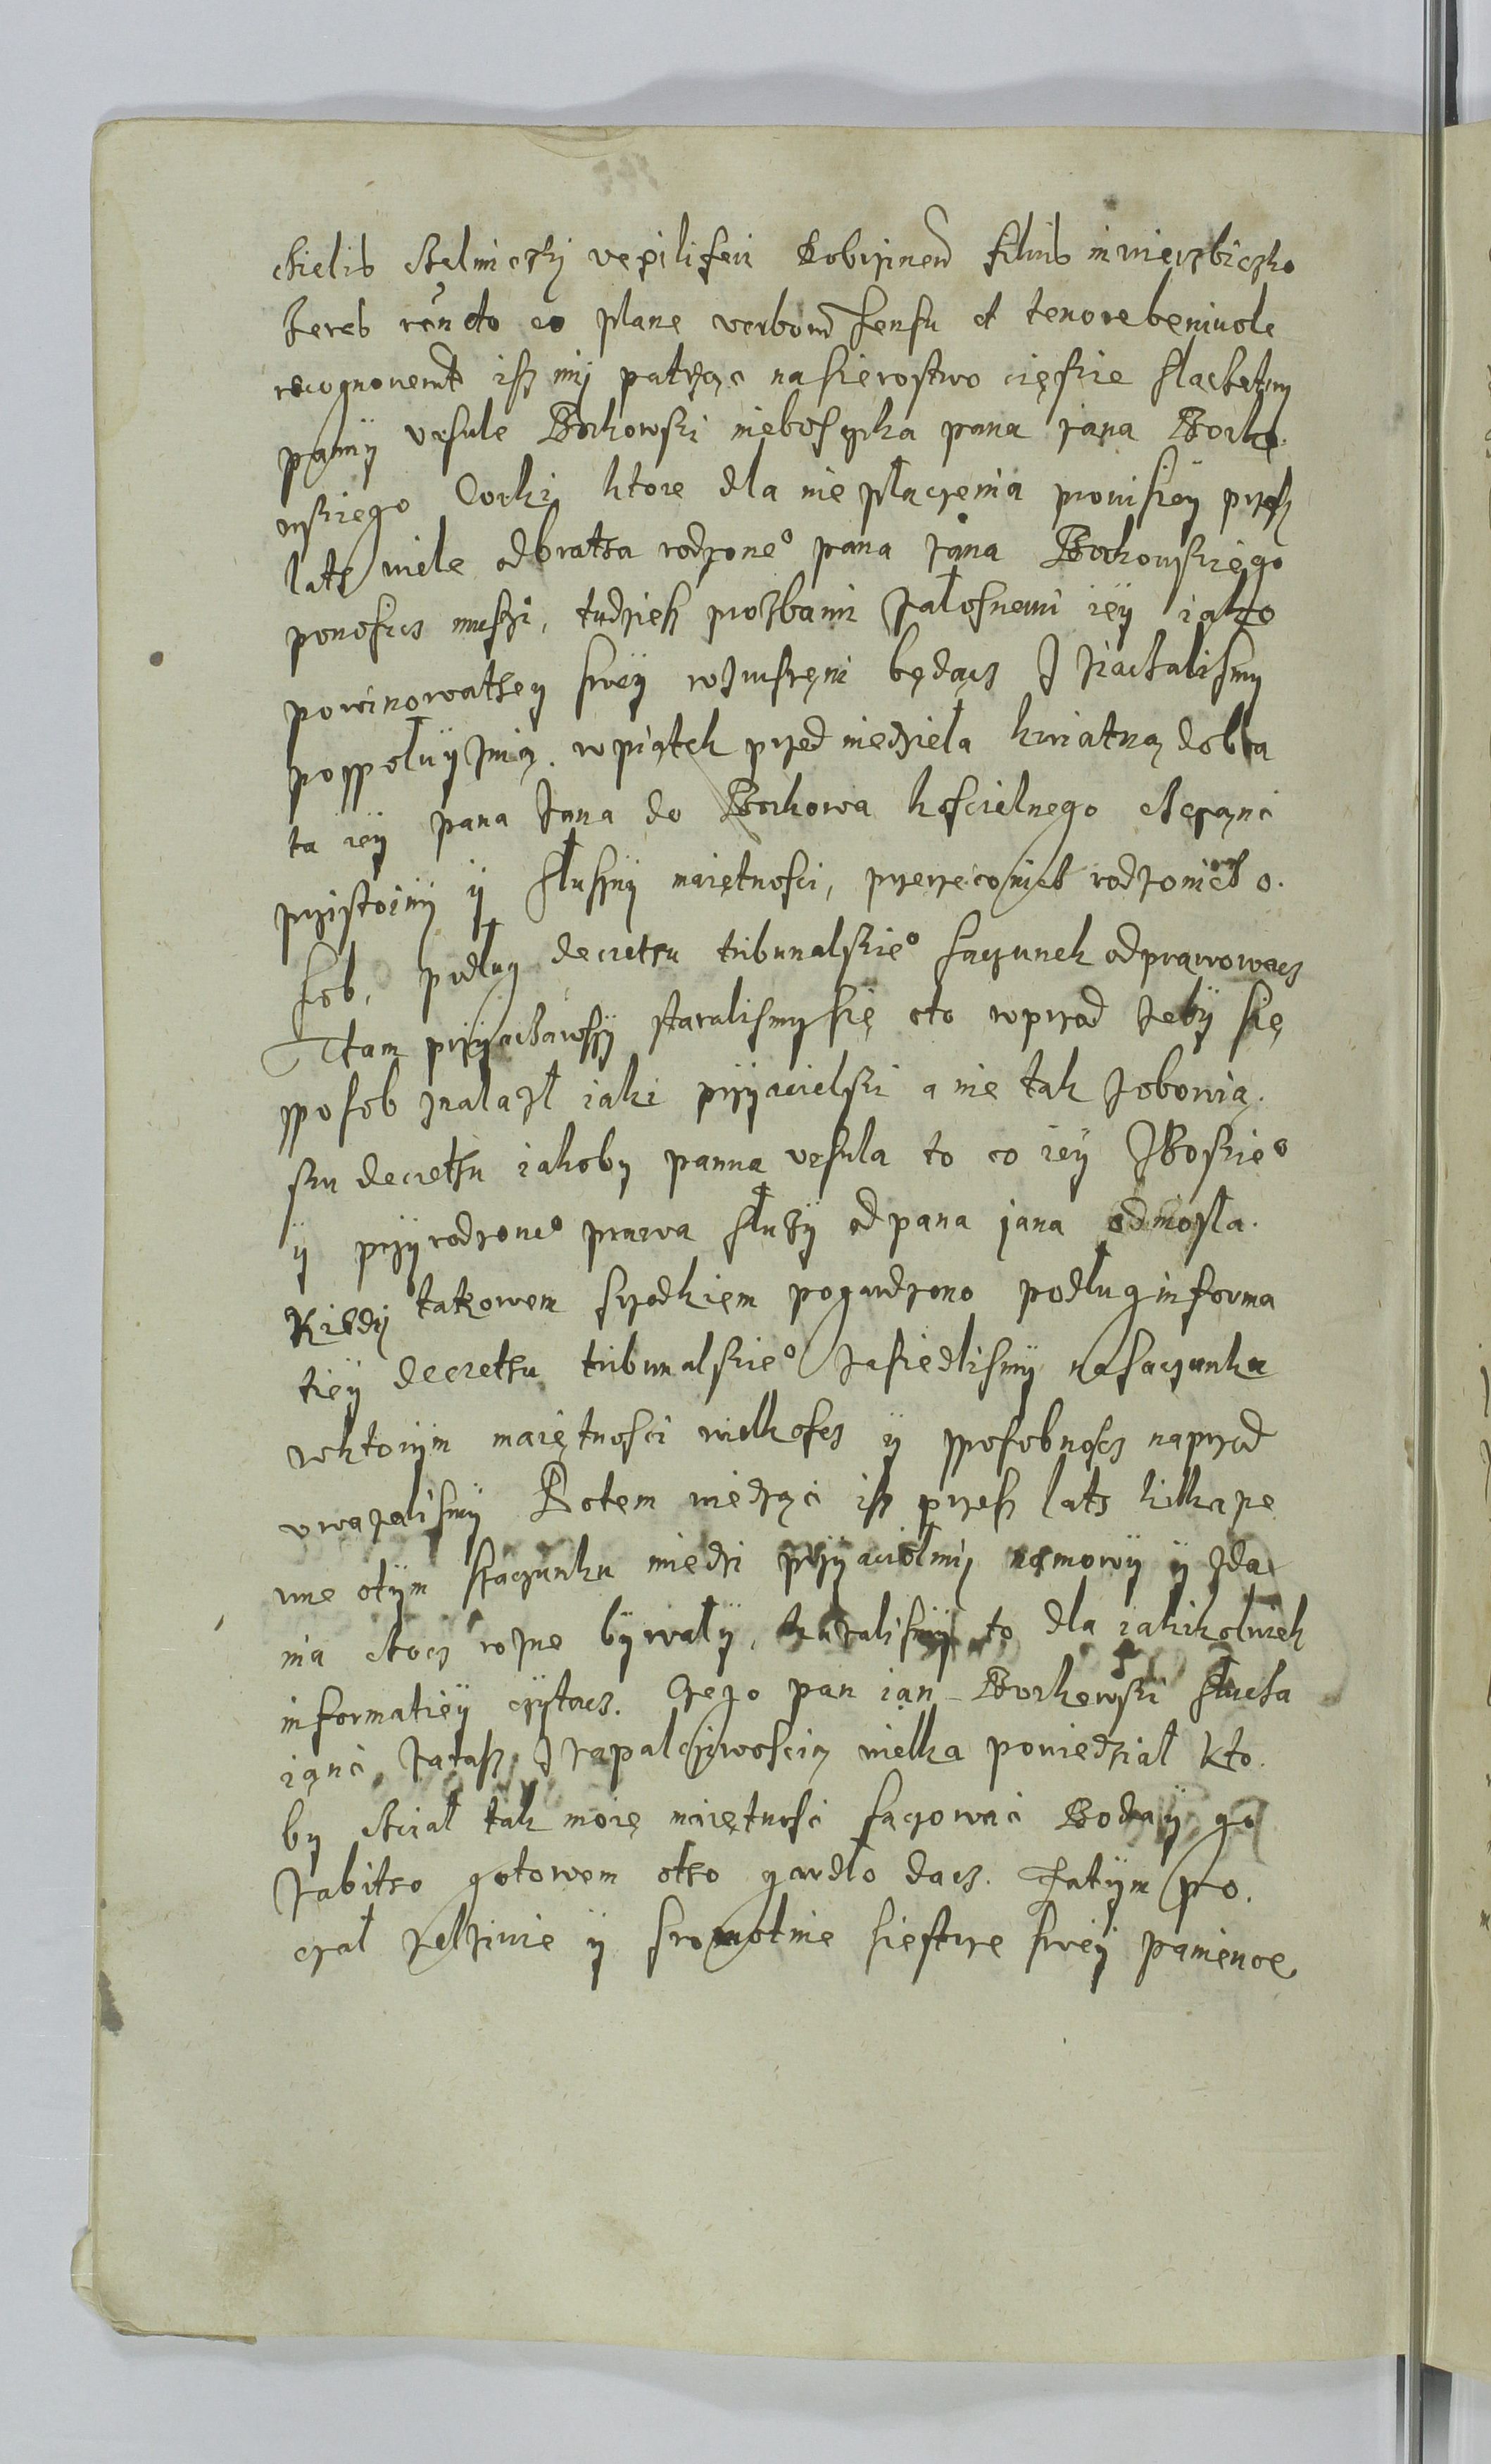 chielis Chelmiczky vexiliferi Dobrinen filius in Wierzbiczko
heres rendo eo plane verborum sensu et tenore benivole
recognoverunt isz my patrząc na sieroctwo cięskie slachetny
panny Vrsule Borkowski nieboscyka pana Jana Borko
wskiego Corky ktore dla nie płaczenia prowisiey przesz
lath wiele od bratha rodzone° pana Jana Borkowskiego
ponosics muszi, tudziesz prozbami załosnemi iey iako
powinowathey swey wzruszeni będącz Iziachalismy
pospołu y zmią. w piątek przed niedziela kwiatną do bra
ta iey pana Jana do Borkowa kościelnego chcąnc
przistoiny y słuszny maiętnosci, przerzeconich rodzonich o.
sob, podlug decretsu tribunalskie° sacunek odprawowacz
Tam przyiachawszy staralismy się oto wprzod zeby się
sposob znalazł iaki przyacielski a nie tak z obowią.
sku decretsu iakoby panna Vrsula to co iey z Boskie°
y przyrodzone° prawa służy od pana Jana odniosła.
Kiedy takowem srzodkiem pogardzono podług informa
tiey decretsu tribunalskie° zasiedlismy na sacunku
w ktorym maiętnosci wielkoscz y sposobnoscz naprzod
vwazalismy Potem wiedząc isz przesz lath kilka pe
wne o tym szacunku miedzi przyaciołmy namowy y zda
nia chocz rozne bywały, kazalismy to dla iakikolwiek
informatiey czytacz. Czego pan ian Borkowski słucha
iąnc, zarasz z zapalczywoscią wielka powiedział kto.
by chciał tak moię maiętnosc sacowac Boday go
zabitho gotowem otho gardło dacz. Zatym po.
czał zelziwie y sromotnie siestrze swey panience